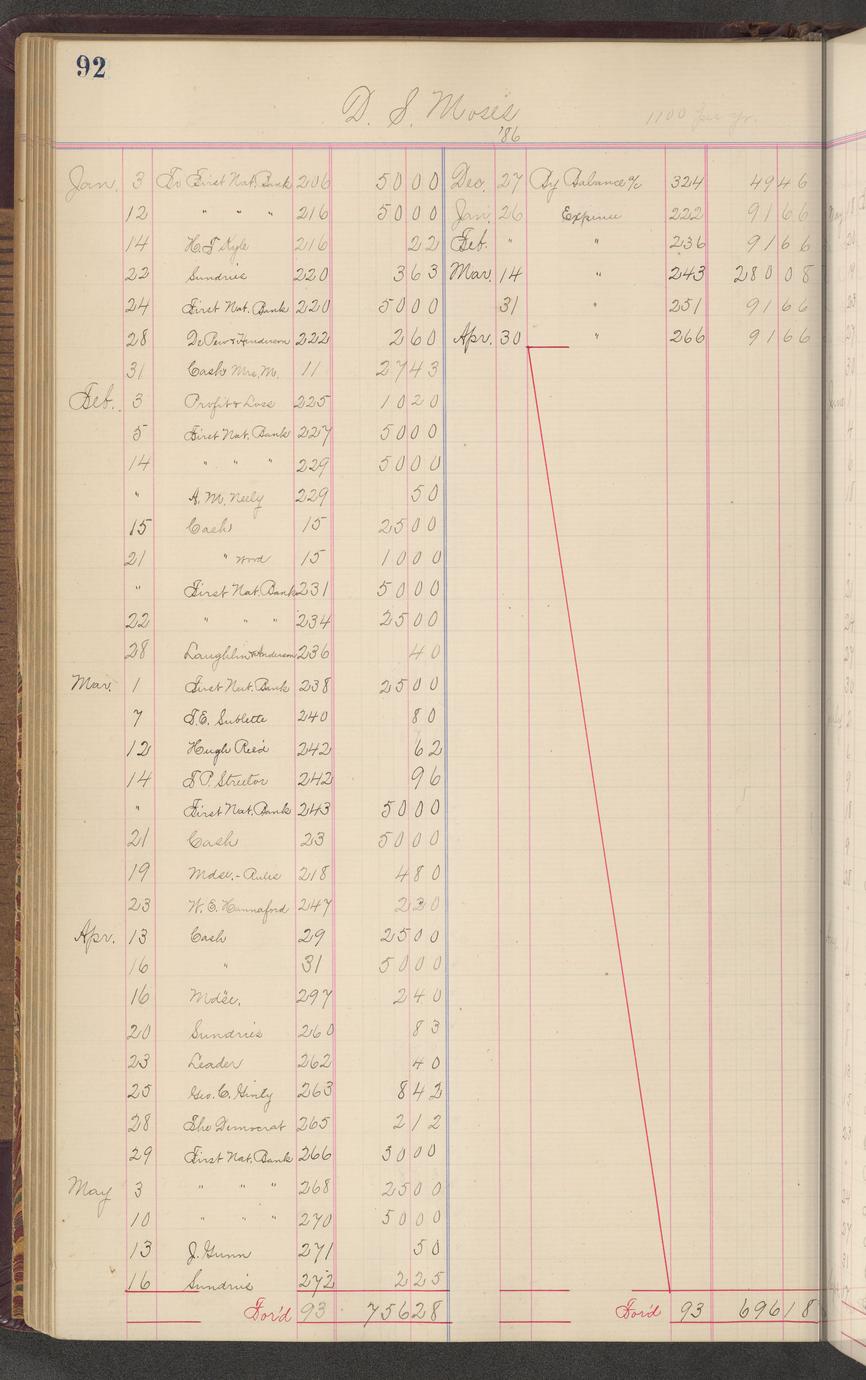 92
D. S. Moses
1100 per yr.
'86
Jan. 3 To First Nat. Bank 206 50 00
12 " " " 216 50 00
14 H. T. Kyle 216 22
22 Sundries 220 3 63
24 First Nat. Bank 220 50 00
28 DePew & Henderson 222 2 60
31 Cash Mrs. M. 11 27 43
Feb. 3 Profit & Loss 225 10 20
5 First Nat. Bank 227 50 00
14 " " " 229 50 00
" A. M. Neely 229 50
15 Cash 15 25 00
21 " Wood 15 10 00
" First Nat. Bank 231 50 00
22 " " " 234 25 00
28 Laughlin & Anderson 236 40
Mar. 1 First Nat. Bank 238 25 00
7 T. E. Sublette 240 80
12 Hugh Reed 242 62
14 T P. Streetor 242 96
" First Nat. Bank 243 50 00
21 Cash 23 50 00
19 Mdse. - Rules 218 4 80
23 W. E. Hannaford 247 2 30
Apr. 13 Cash 29 25 00
16 " 31 50 00
16 Mdse. 297 2 40
20 Sundries 260 83
23 Leader 262 40
25 Geo. C. Ginty 263 8 42
28 The Democrat 265 2 12
29 First Nat. Bank 266 30 00
May 3 " " " 268 25 00
10 " " " 270 50 00
13 J. Gunn 271 50
16 Sundries 272 2 25
For'd 93 756 28
Dec. 27 By Balance % 324 49 46
Jan. 26 Expense 222 91 66
Feb. " " 236 91 66
Mar. 14 " 243 280 08
31 " 251 91 66
Apr. 30 " 266 91 66
For'd 93 696 18